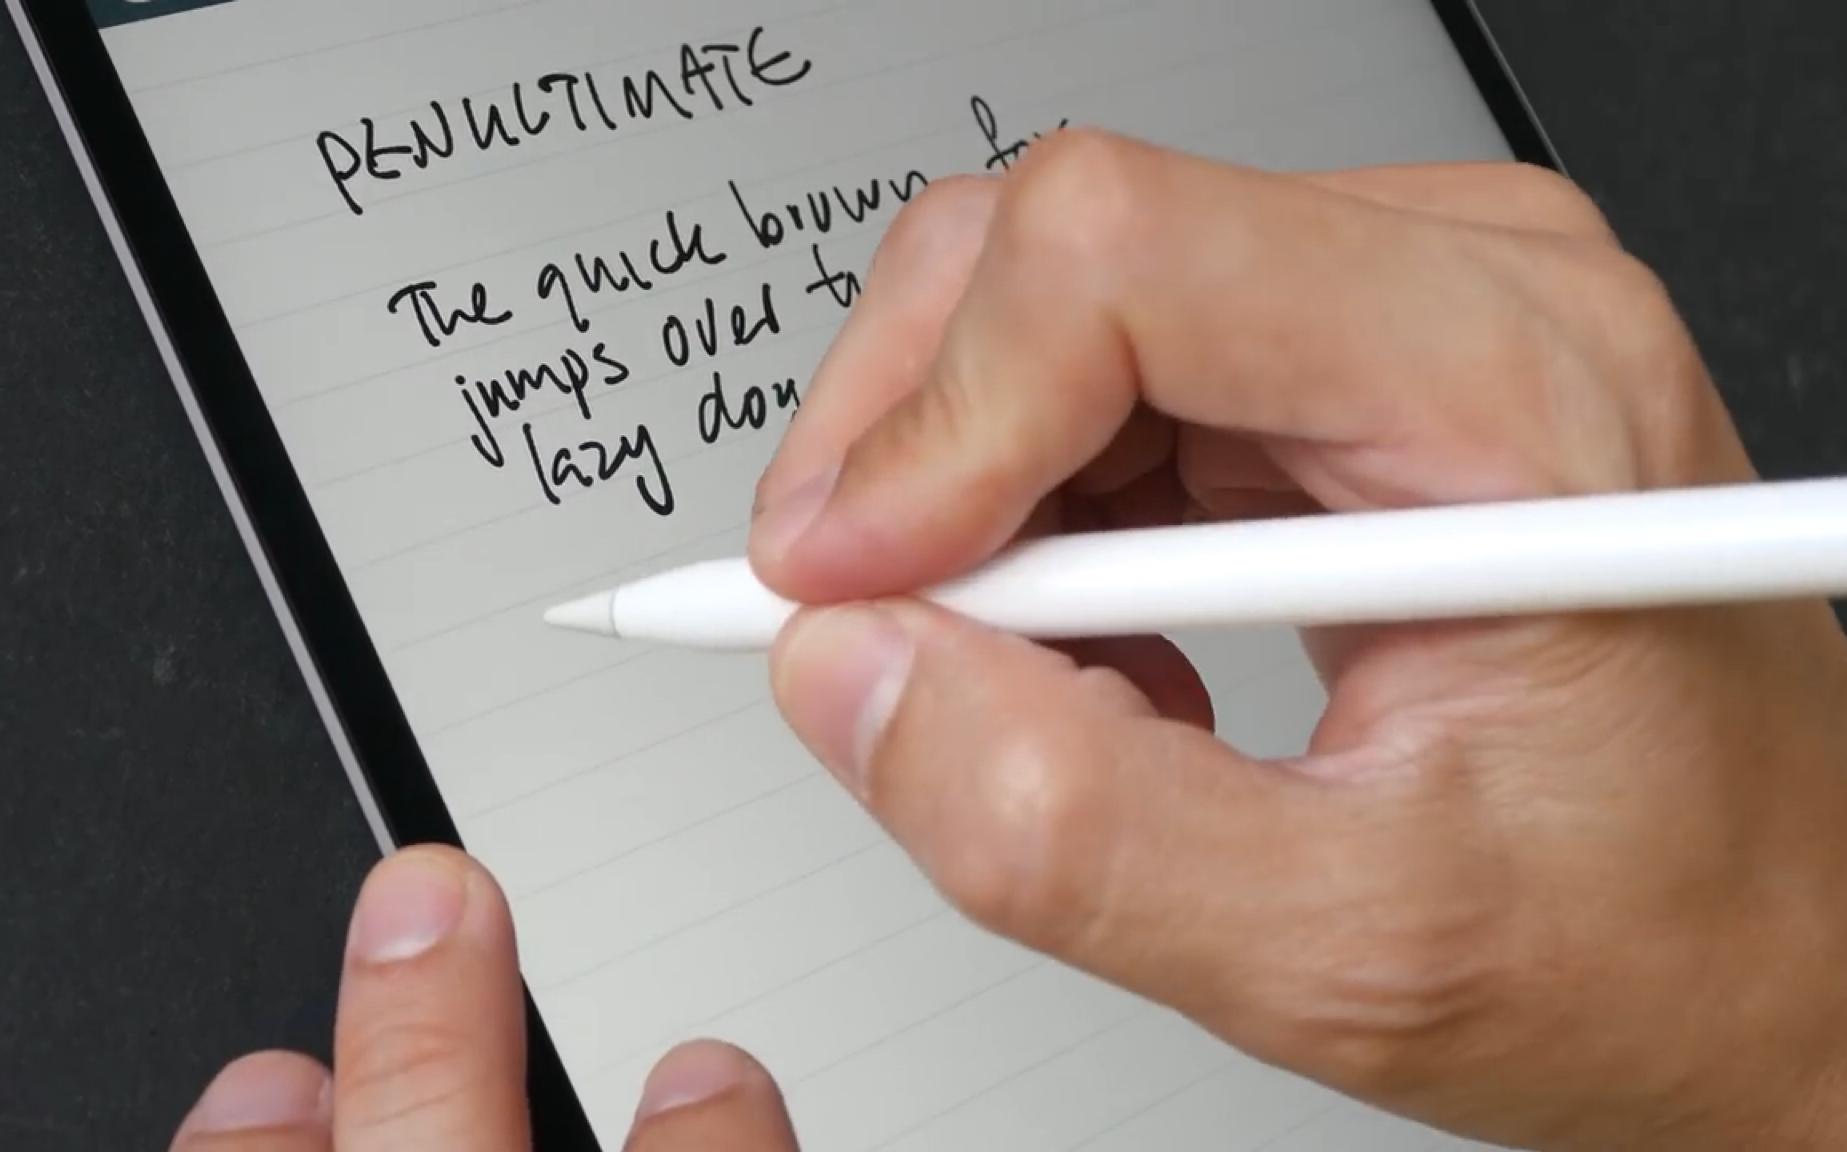 PENULTIMATE
The quick brown fox
jumps over
lazy dog